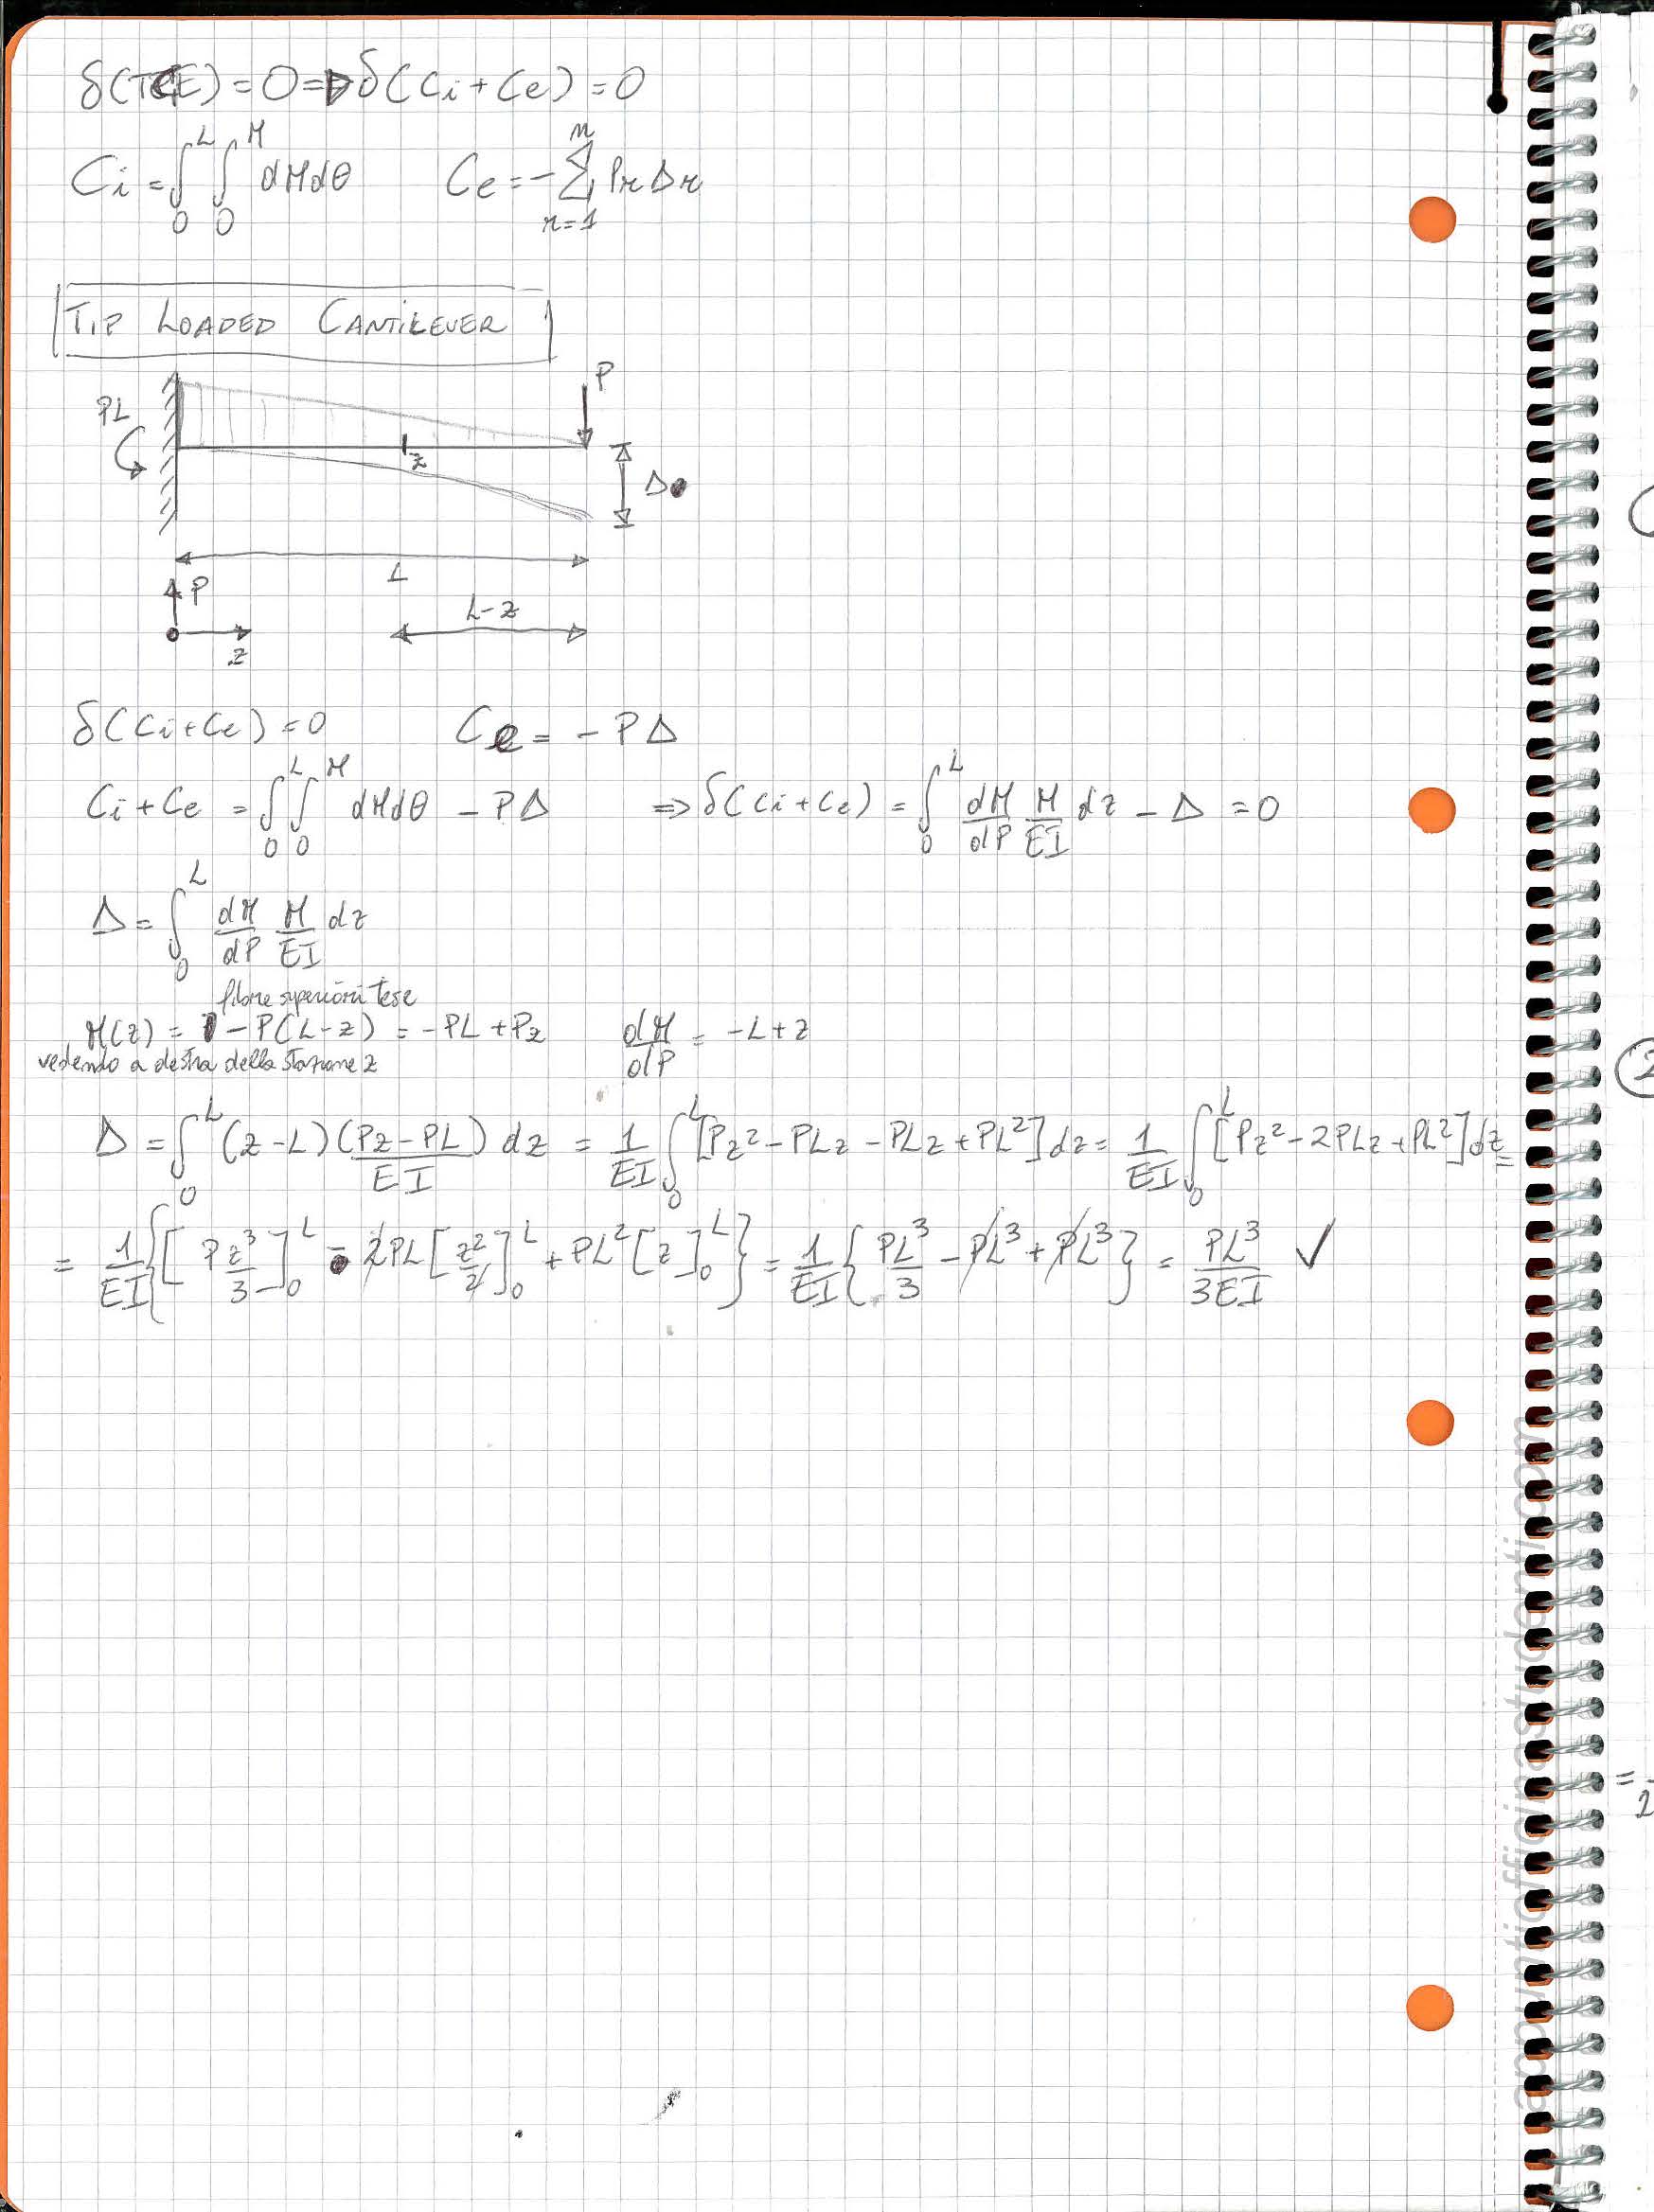 δ(TCE) = 0 => δ(Ci + Ce) = 0
Ci = ∫₀ᴸ ∫₀ᴹ dM dθ   Ce = - Σ_{r=1}^{n} Pr Δr
TIP LOADED CANTILEVER
P
PL
z
Δ
L
P
L-z
z
δ(Ci + Ce) = 0   Ce = - PΔ
Ci + Ce = ∫₀ᴸ ∫₀ᴹ dM dθ - PΔ   => δ(Ci + Ce) = ∫₀ᴸ dM/dP M/EI dz - Δ = 0
Δ = ∫₀ᴸ dM/dP M/EI dz
fibre superiori tese
M(z) = - P(L-z) = - PL + Pz   dM/dP = - L + z
vedendo a destra della stazione z
Δ = ∫₀ᴸ (z-L) (Pz-PL)/EI dz = 1/EI ∫₀ᴸ [Pz² - PLz - PLz + PL²] dz = 1/EI ∫₀ᴸ [Pz² - 2PLz + PL²] dz =
= 1/EI { [P z³/3]₀ᴸ - 2PL [z²/2]₀ᴸ + PL² [z]₀ᴸ } = 1/EI { PL³/3 - PL³ + PL³ } = PL³/3EI ✓
2
=
2
appuntiofficinastudenti.com